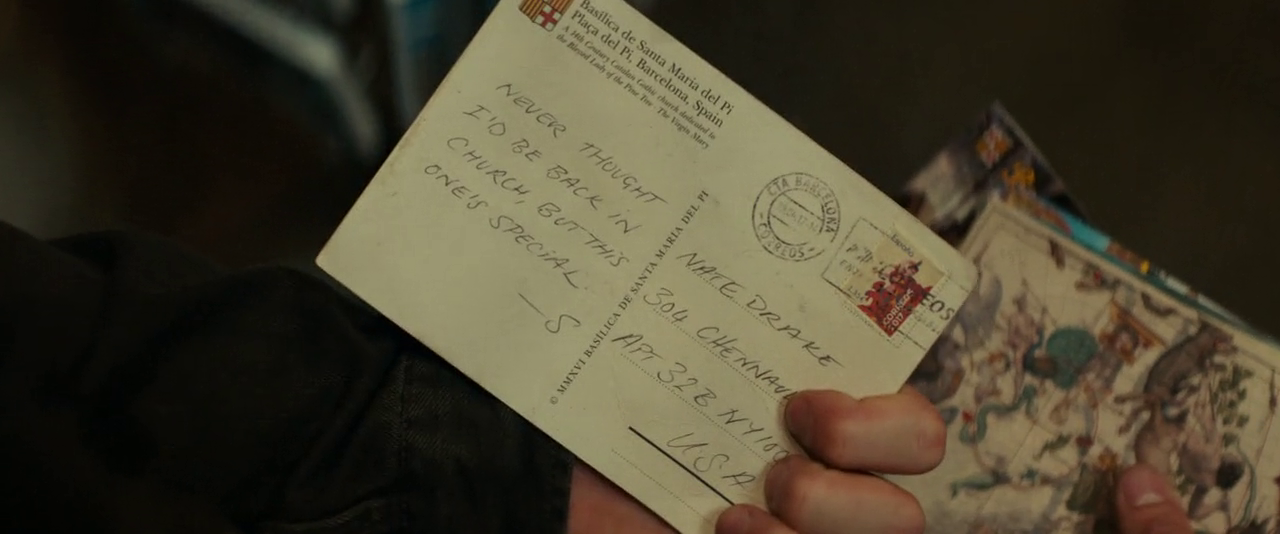 Basílica de Santa Maria del Pi
Plaça del Pi, Barcelona, Spain
A 14th Century Catalan Gothic church dedicated to
the Blessed Lady of the Pine Tree - The Virgin Mary
NEVER THOUGHT
I'D BE BACK IN
CHURCH, BUT THIS
ONE'S SPECIAL
—S
© MMXVI BASÍLICA DE SANTA MARIA DEL PI
CTA BARCELONA
CORREOS
España
CORREOS
EOS
NATE DRAKE
304 CHENNAU
APT 32B NY100
USA